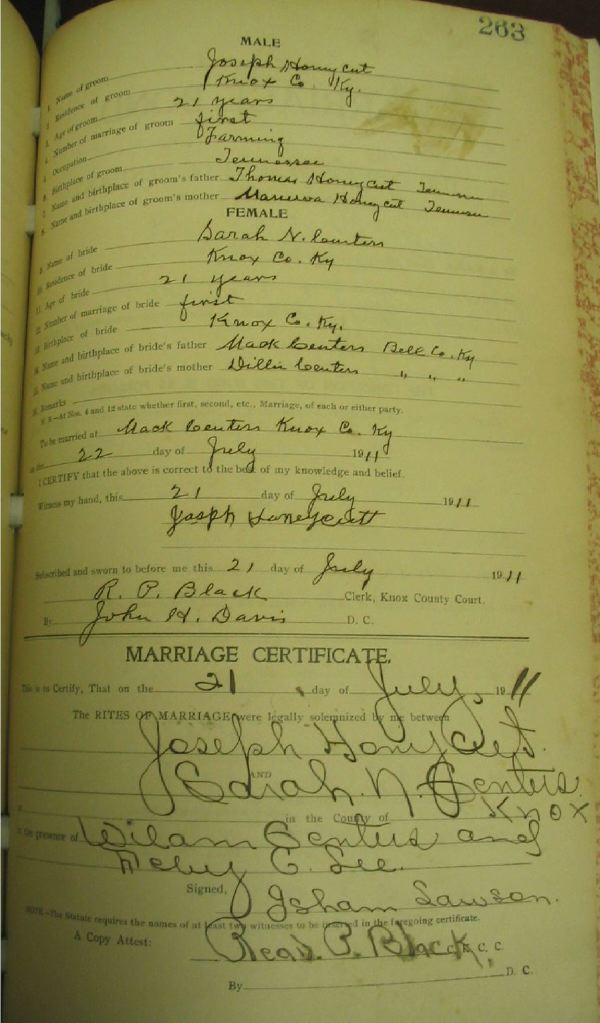 263
MALE
1. Name of groom Joseph Honycut
2. Residence of groom Knox Co. Ky.
3. Age of groom 21 years
4. Number of marriage of groom first
5. Occupation Farming
6. Birthplace of groom Tennessee
7. Name and birthplace of groom's father Thomas Honycut
8. Name and birthplace of groom's mother Honycut
FEMALE
9. Name of bride Sarah N. Centers
10. Residence of bride Knox Co. Ky
11. Age of bride 21 years
12. Number of marriage of bride first
13. Birthplace of bride Knox Co. Ky.
14. Name and birthplace of bride's father Mack Centers Bell Co. Ky
15. Name and birthplace of bride's mother Dillie Centers " " "
16. Remarks
N. B.—At Nos. 4 and 12 state whether first, second, etc., Marriage, of each or either party.
To be married at Mack Centers Knox Co. Ky
on the 22 day of July 1911
I CERTIFY that the above is correct to the best of my knowledge and belief.
Witness my hand, this 21 day of July 1911
Josph Huneycutt
Subscribed and sworn to before me this 21 day of July 1911
R. P. Black Clerk, Knox County Court.
By John H. Davis D. C.
MARRIAGE CERTIFICATE.
This is to Certify, That on the 21 day of July, 1911
The RITES OF MARRIAGE were legally solemnized by me between
Joseph Honycut.
AND
Sarah. N. Centus.
in the County of Knox
in the presence of Wilam Centus and
C. Lee.
Signed, Isham Lawson.
NOTE—The Statute requires the names of at least two witnesses to be inserted in the foregoing certificate.
A Copy Attest: Read. P. Black, C. K. C. C.
By D. C.